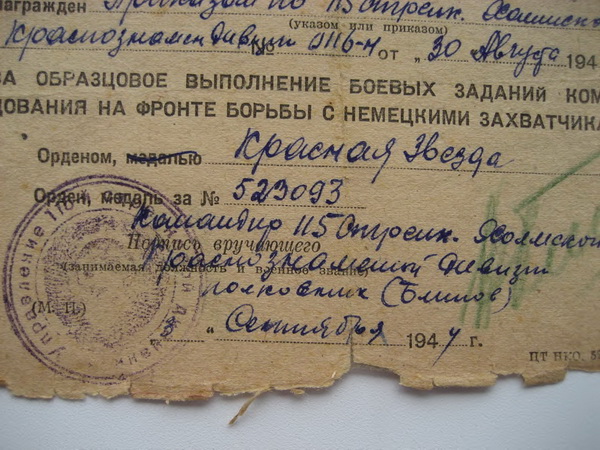 награжден Приказом по 115 Стрелк. Холмской
(указом или приказом)
Краснознамен Дивизии № 0116-н от „30" Августа 194
ЗА ОБРАЗЦОВОЕ ВЫПОЛНЕНИЕ БОЕВЫХ ЗАДАНИЙ КОМ
ДОВАНИЯ НА ФРОНТЕ БОРЬБЫ С НЕМЕЦКИМИ ЗАХВАТЧИКА
Орденом, медалью Красная Звезда
Орден, медаль за № 523093
Командир 115 Стрелк. Холмской
Подпись вручающего
Краснознаменной Дивизии
(занимаемая должность и военное звание)
полковник (Блинов)
(М. П.)
" Сентября 1944 г.
ПТ НКО.
Управление 115